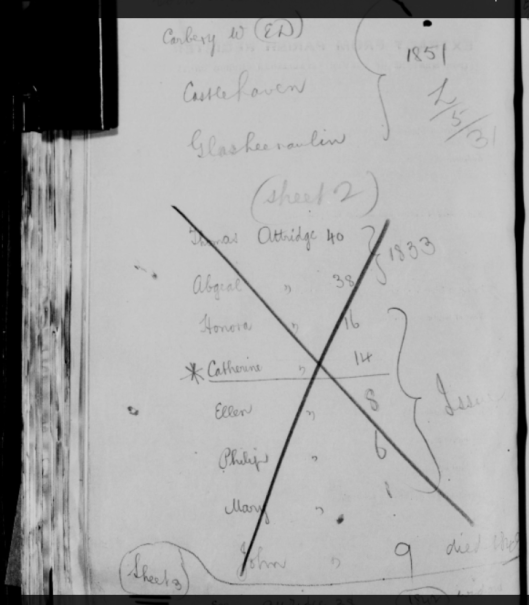 Carbery W (ED)
1851
Castlehaven
2/5/31
Glasheenaulin
(sheet 2)
Thomas Attridge 40
1833
Abgeal " 38
Honora " 16
* Catherine " 14
Ellen " 8
Issue
Philip " 6
Mary " 1
John " 9 died
Sheet 3